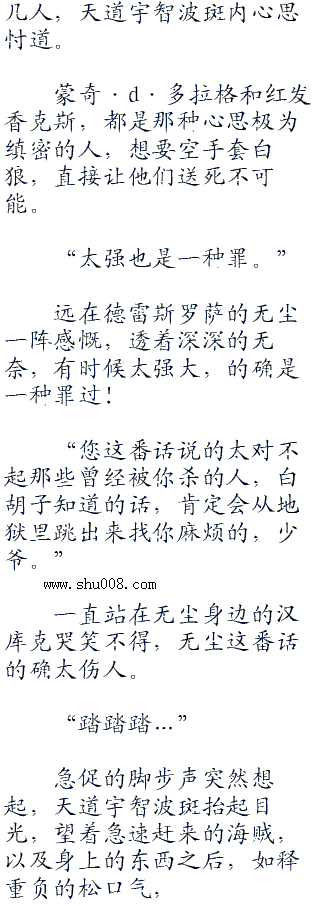 几人，天道宇智波斑内心思
忖道。
蒙奇·d·多拉格和红发
香克斯，都是那种心思极为
缜密的人，想要空手套白
狼，直接让他们送死不可
能。
“太强也是一种罪。”
远在德雷斯罗萨的无尘
一阵感慨，透着深深的无
奈，有时候太强大，的确是
一种罪过！
“您这番话说的太对不
起那些曾经被你杀的人，白
胡子知道的话，肯定会从地
狱里跳出来找你麻烦的，少
爷。”
www.shu008.com
一直站在无尘身边的汉
库克哭笑不得，无尘这番话
的确太伤人。
“踏踏踏…”
急促的脚步声突然想
起，天道宇智波斑抬起目
光，望着急速赶来的海贼，
以及身上的东西之后，如释
重负的松口气，